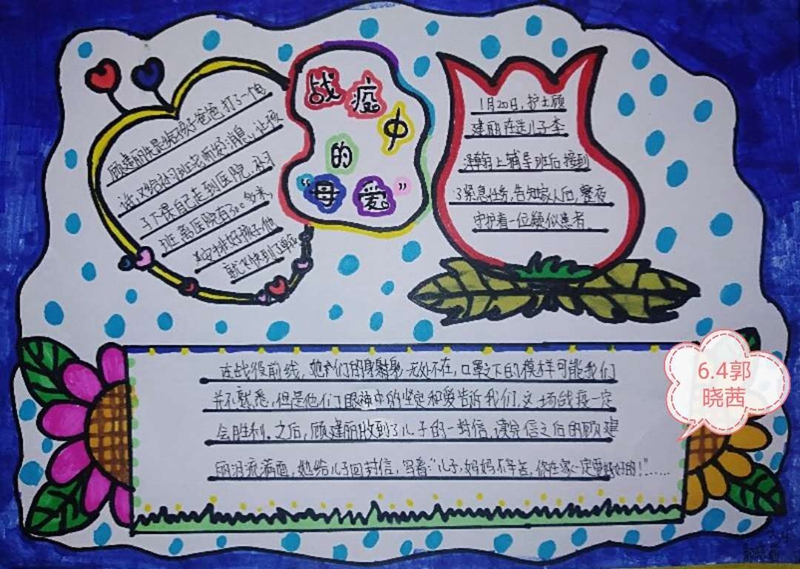 战疫中
的
“母爱”
顾建丽先是给孩子爸爸打了一个电
话,又给补习班老师发消息,让孩
子下课自己走到医院,补习
班离医院有300多米,
安排好孩子,他
就飞快到了单位
1月20日,护士顾
建丽在送儿子李
上辅导班后接到
了紧急任务,告知家人后,整夜
守护着一位疑似患者。
在战役前线,她们的身影无处不在,口罩之下的模样可能我们
并不熟悉,但是他们眼神中的坚定和爱告诉我们,这场战疫一定
会胜利。之后,顾建丽收到了儿子的一封信,读完信之后的顾建
丽泪流满面,她给儿子回封信,写着:“儿子,妈妈不辛苦,你在家一定要好好的!”……
6.4郭
晓茜